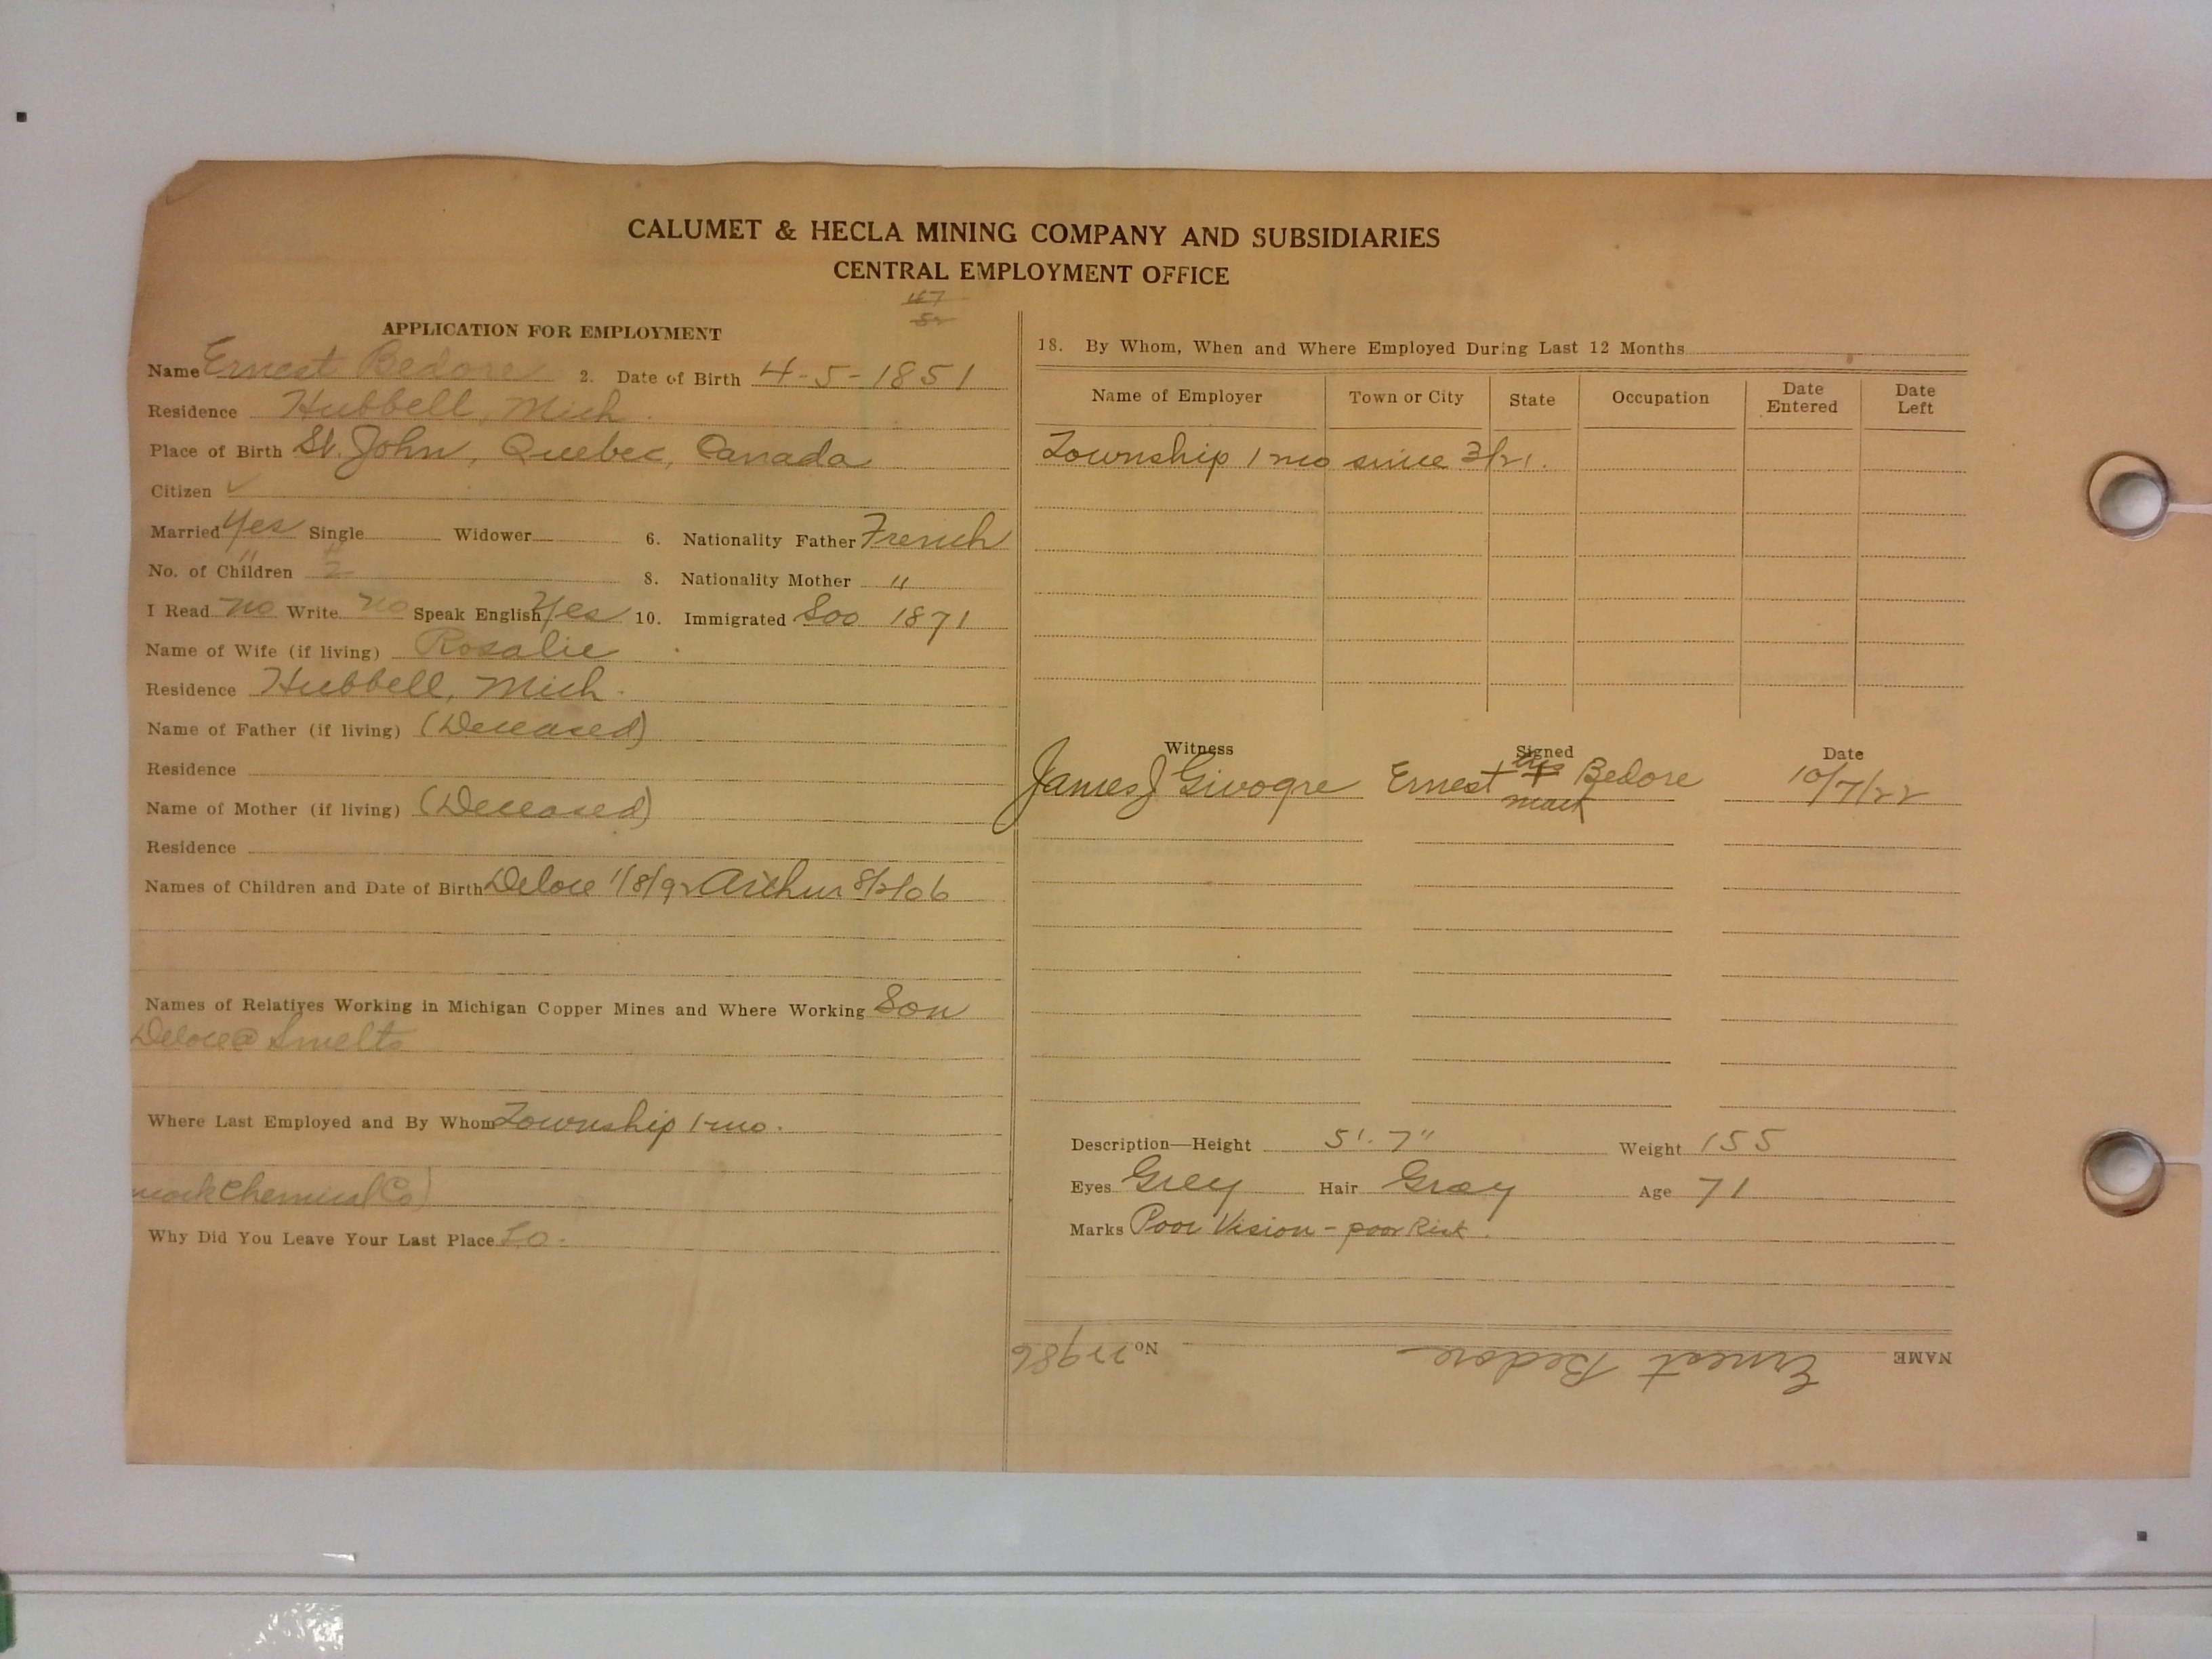 CALUMET & HECLA MINING COMPANY AND SUBSIDIARIES
CENTRAL EMPLOYMENT OFFICE
APPLICATION FOR EMPLOYMENT
Name Ernest Bedore 2. Date of Birth 4-5-1851
Residence Hubbell, Mich.
Place of Birth St. John, Quebec, Canada
Citizen ✓
Married Yes Single Widower 6. Nationality Father French
No. of Children 2 8. Nationality Mother "
I Read no Write no Speak English Yes 10. Immigrated Soo 1871
Name of Wife (if living) Rosalie
Residence Hubbell, Mich.
Name of Father (if living) (Deceased)
Residence
Name of Mother (if living) (Deceased)
Residence
Names of Children and Date of Birth Delore 1/8/92 Arthur 8/2/06
Names of Relatives Working in Michigan Copper Mines and Where Working Son
Delore @ Smelts
Where Last Employed and By Whom Township 1 mo.
Chemical Co)
Why Did You Leave Your Last Place L.O.
18. By Whom, When and Where Employed During Last 12 Months
Name of Employer Town or City State Occupation Date Entered Date Left
Township 1 mo since 3/21.
Witness Signed Date
James J Givogre Ernest his + mark Bedore 10/7/22
Description—Height 5'. 7" Weight 155
Eyes Grey Hair Gray Age 71
Marks Poor Vision - poor Risk.
NAME Ernest Bedore No. 22986